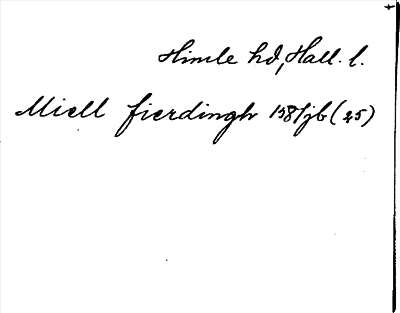 Himle hd, Hall. l.
Miell fierdingh 1581 jb (25)